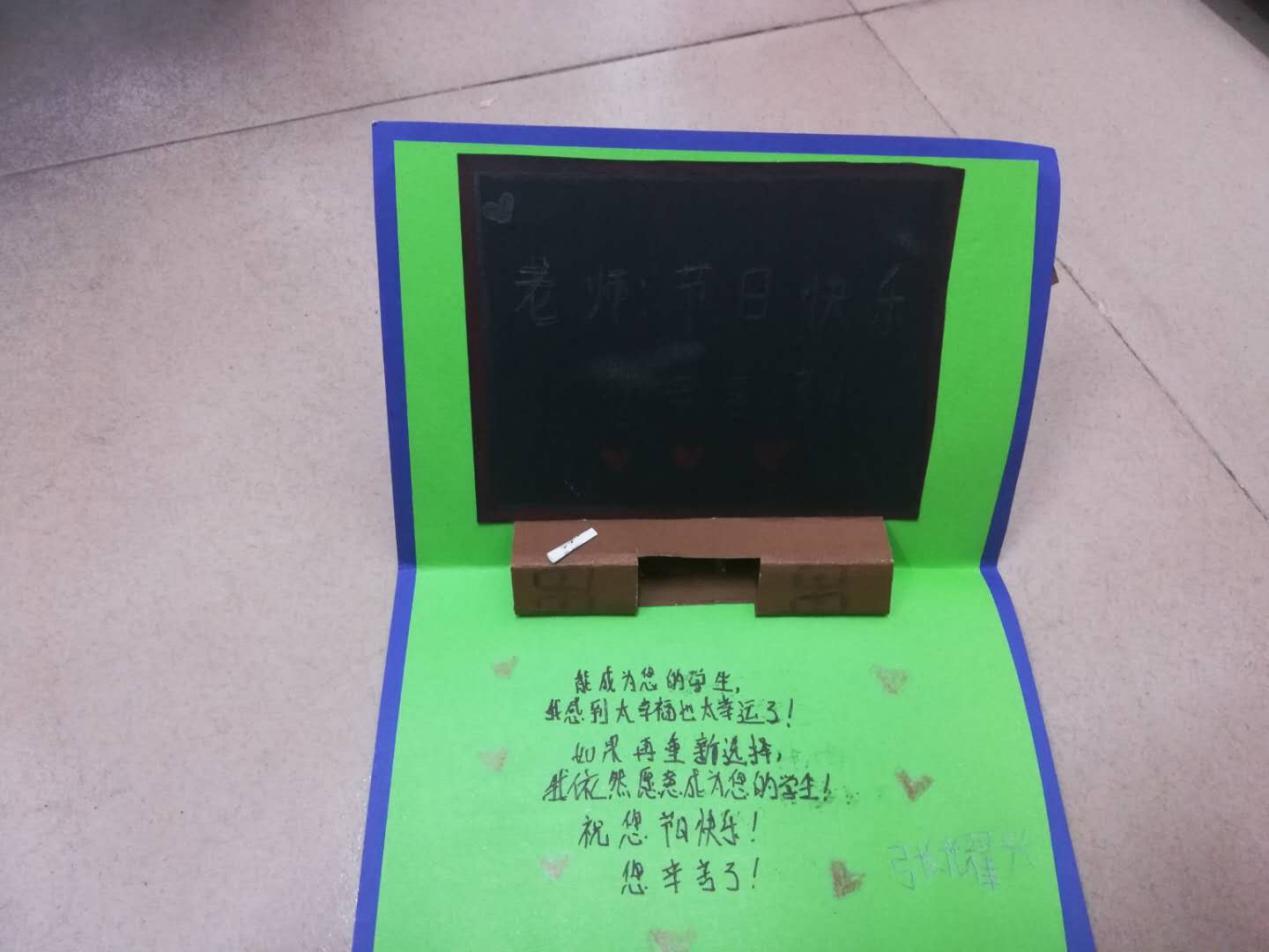 老师:节日快乐
能成为您的学生,
我感到太幸福也太幸运了!
如果再重新选择,
我依然愿意成为您的学生!
祝您节日快乐!
您辛苦了!
张耀兴